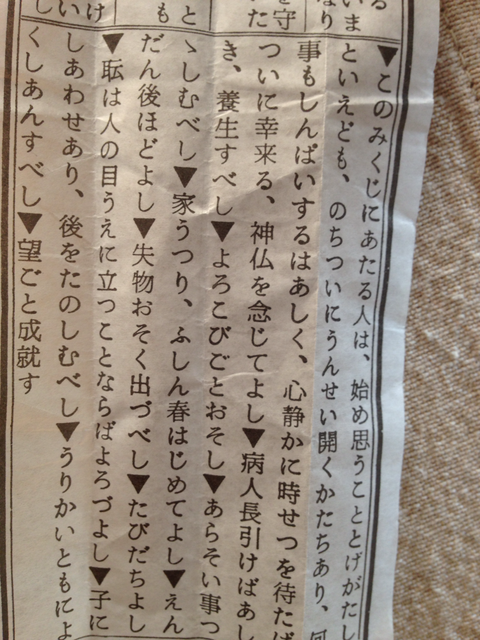 る
いま
なり
を守
いた
と
も
け
▼このみくじにあたる人は、始め思うこととげがたし
といえども、のちついにうんせい開くかたちあり、何
事もしんぱいするはあしく、心静かに時せつを待たば
ついに幸来る、神仏を念じてよし▼病人長引けばあし
き、養生すべし▼よろこびごとおそし▼あらそい事つ
ゝしむべし▼家うつり、ふしん春はじめてよし▼えん
だん後ほどよし▼失物おそく出づべし▼たびだちよし
▼耺は人の目うえに立つことならばよろづよし▼子に
しあわせあり、後をたのしむべし▼うりかいともによ
くしあんすべし▼望ごと成就す